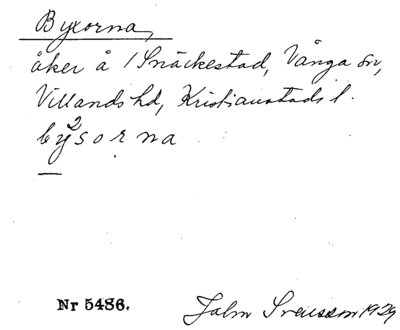 Byxorna,
åker å 1 Snäckestad, Vånga sn,
Villands hd, Kristianstads l.
by²sorna
Nr 5486.
John Svensson 1929